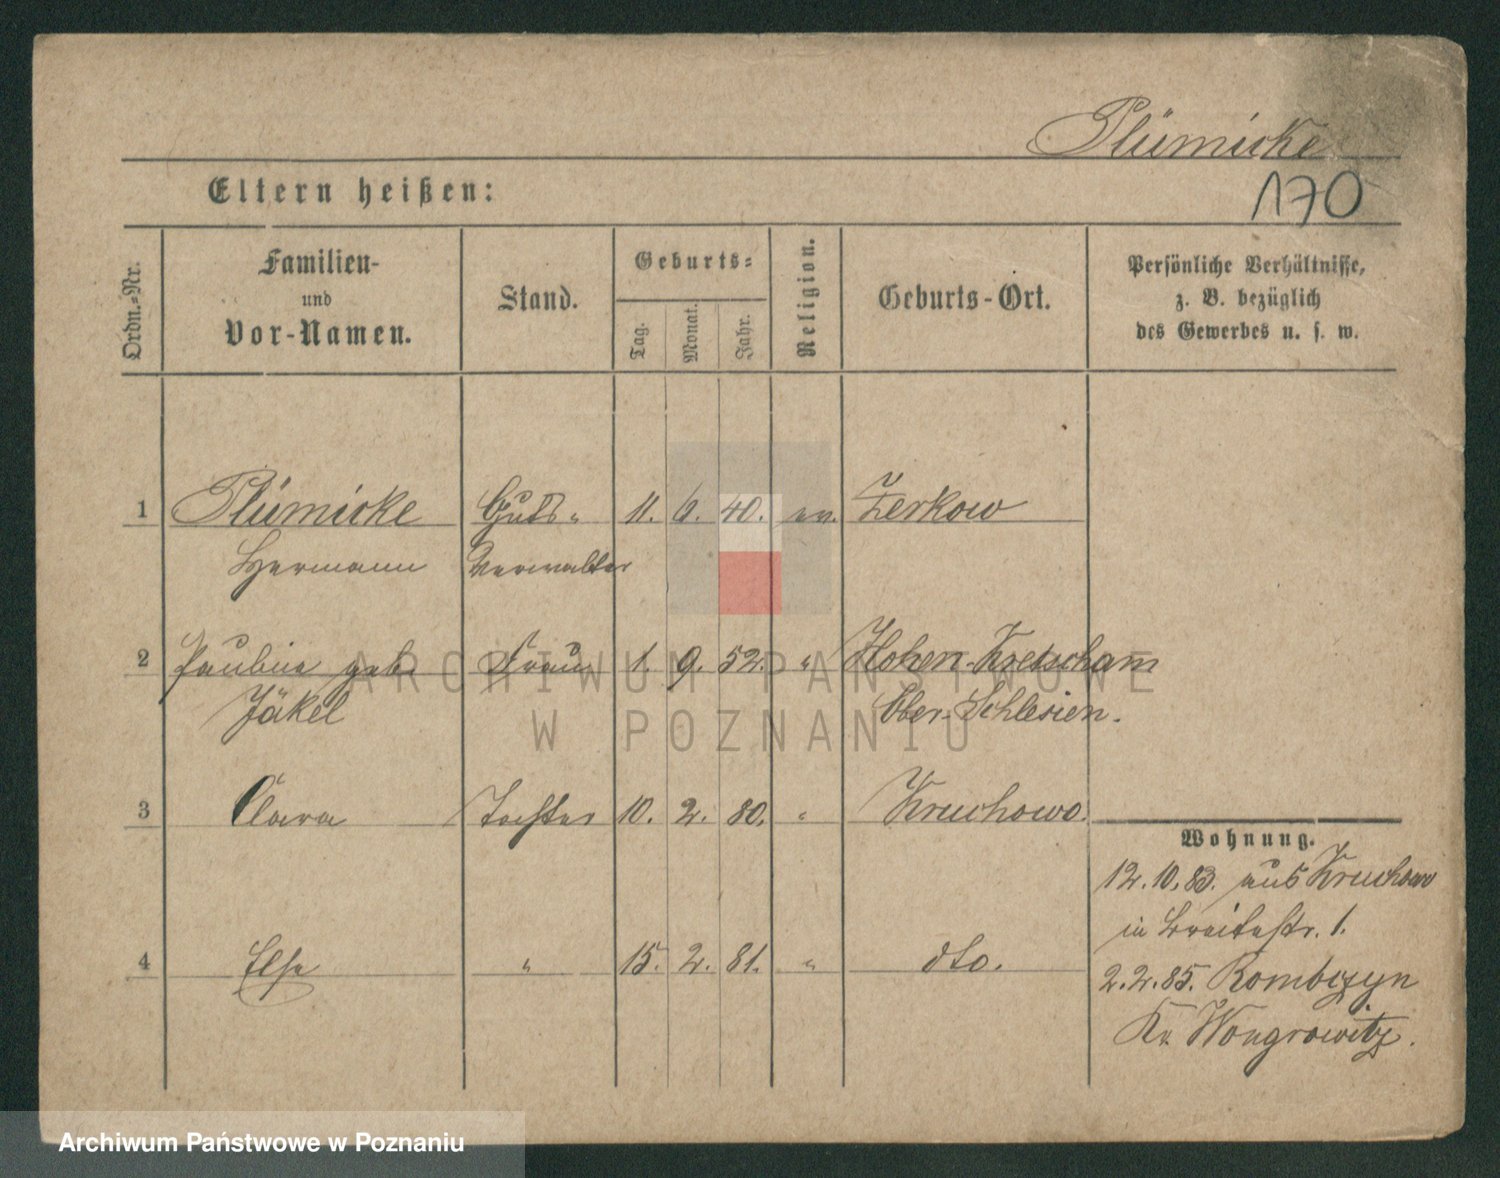 Plümicke
Eltern heißen:
170
Ordn.=Nr.
Familien-
und
Vor-Namen.
Stand.
Geburts=
Tag.
Monat.
Jahr.
Religion.
Geburts-Ort.
Persönliche Verhältnisse,
z. B. bezüglich
des Gewerbes u. s. w.
1 Plümicke Guts- 11. 6. 40. ev. Zerkow
Hermann Verwalter
2 Pauline geb. Frau 1. 9. 52. " Hohen-Kretscham
Jäkel Ober-Schlesien.
3 Clara Tochter 10. 2. 80. " Kruchowo
Wohnung.
12.10.83. aus Kruchowo
in Breitestr. 1.
4 Else " 15. 2. 81. " dto.
2.2.85. Rombczyn
Kr. Wongrowitz.
ARCHIWUM PAŃSTWOWE
W POZNANIU
Archiwum Państwowe w Poznaniu